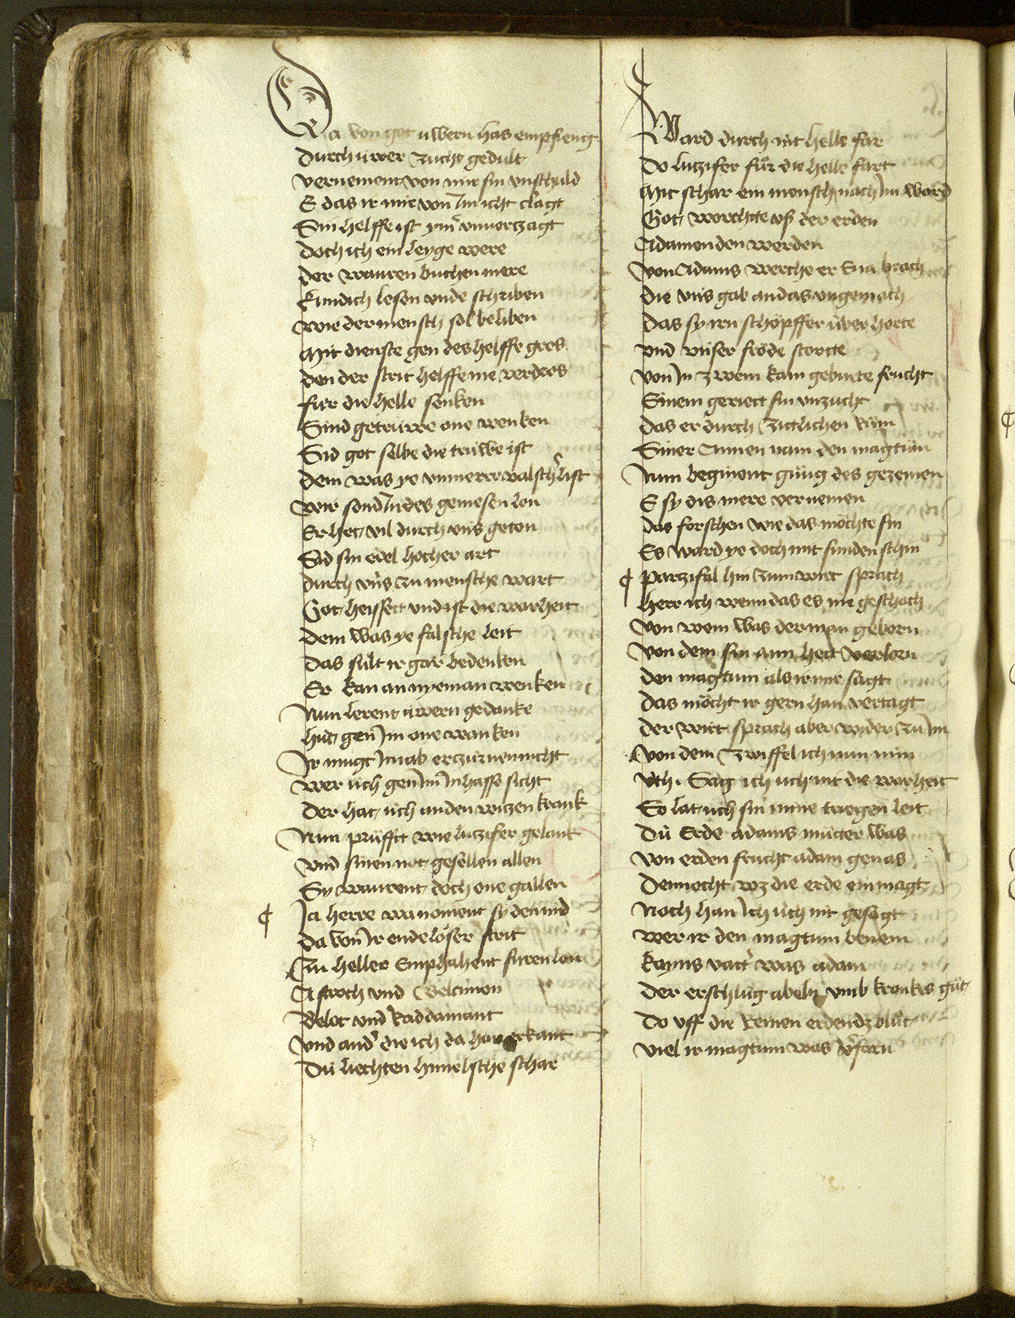 Da von got uwern has empfieng
Durch uwer zucht gedult
vernement von mir sin unschuld
E das ir mir von Im icht clagt
Sin helffe ist ym̄ unverzagt
doch ich ein leyge were
der wauren buchen mere
kund ich lesen unde schriben
wie der mensch sol beliben
Mit dienste gen des helffe gros
den der strit helffe nie verdros
für die helle senken
Sind getruwe one wenken
Sid got selbe die truwe ist
dem was ye unmerer valsch list
wir sond In des genießen lon
Er het vil durch uns geton
Sid sin edel hocher art
durch uns zu mensche wart
Got heisset und ist die warheit
dem was ye falsche leit
das sült ir gar bedenken
Er kan an nyeman wenken
Nun lerent uwern gedanke
hüt gen Im one wanken
Ir mugt Im ab erzürnen nicht
wer üch gen Im In hasse sicht
der hat üch an den witzen krank
Nun prüfft wie lutzifer gelank
und sinen not gesellen allen
Sy waurent doch one gallen
¶ Ja herre wa noment sy den nid
da von Ir endeloser strit
Zu heller Emphahent suren lon
Astroth und Belcimon
Belet und Raddamant
und and' die ich da han erkant
Dü liechten himelsche schar
Ward durch nit helle far
Do lutzifer für die helle fart
Mit schar ein mensch nach Im ward
Got worchte uß der erden
Adamen den werden
von Adams verche er Eva brach
die uns gab an das ungemach
das sy irn schöpffer über horte
und unser fröde storte
von In zwein kam geburte frucht
Einem geriett sin unzucht
das er durch zitlichen rüm
Siner Annen nam den magtum
Nun beginnt gnüg des gezemen
E sy dis mere vernemen
das forschen wie das möchte sin
Es ward ye doch mit sunden schin
¶ Parzifal hin zum wirt sprach
herr ich wenn das es nie geschach
von wem was der man geborn
von dem sin ann hett verlorn
den magtum als ir mir sagt
das möcht ir gern han vertagt
der wirt sprach aber wider zu Im
von dem zwiffel ich üch nim
Sag ich üch nit die warheit
So lat üch sin mine triegen leit
Dü Erde adams müter was
von erden frucht adam genas
Dennocht wz die erde ein magt
Noch han Ich üch nit gesagt
wer ir den magtum benem
kayns vatter was adam
der erschlüg abeln umb krankes güt
Do uff die reinen erden dz blüt
viel ir magtum was v'farn